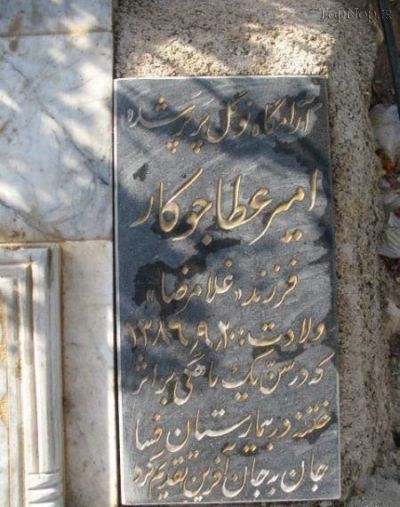 TopNop.ir
آرامگاه نوگل پرپر شده
امیر عطا جوکار
فرزند «غلامرضا»
ولادت: ۱۳۸۶,۹,۲۰
که در سن یک ماهگی بر اثر
ختنه در بیمارستان فسا
جان به جان آفرین تقدیم کرد